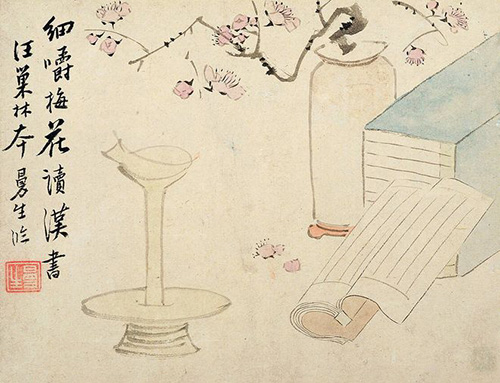 細嚼梅花讀漢書
汪巢林本曼生臨
曼生